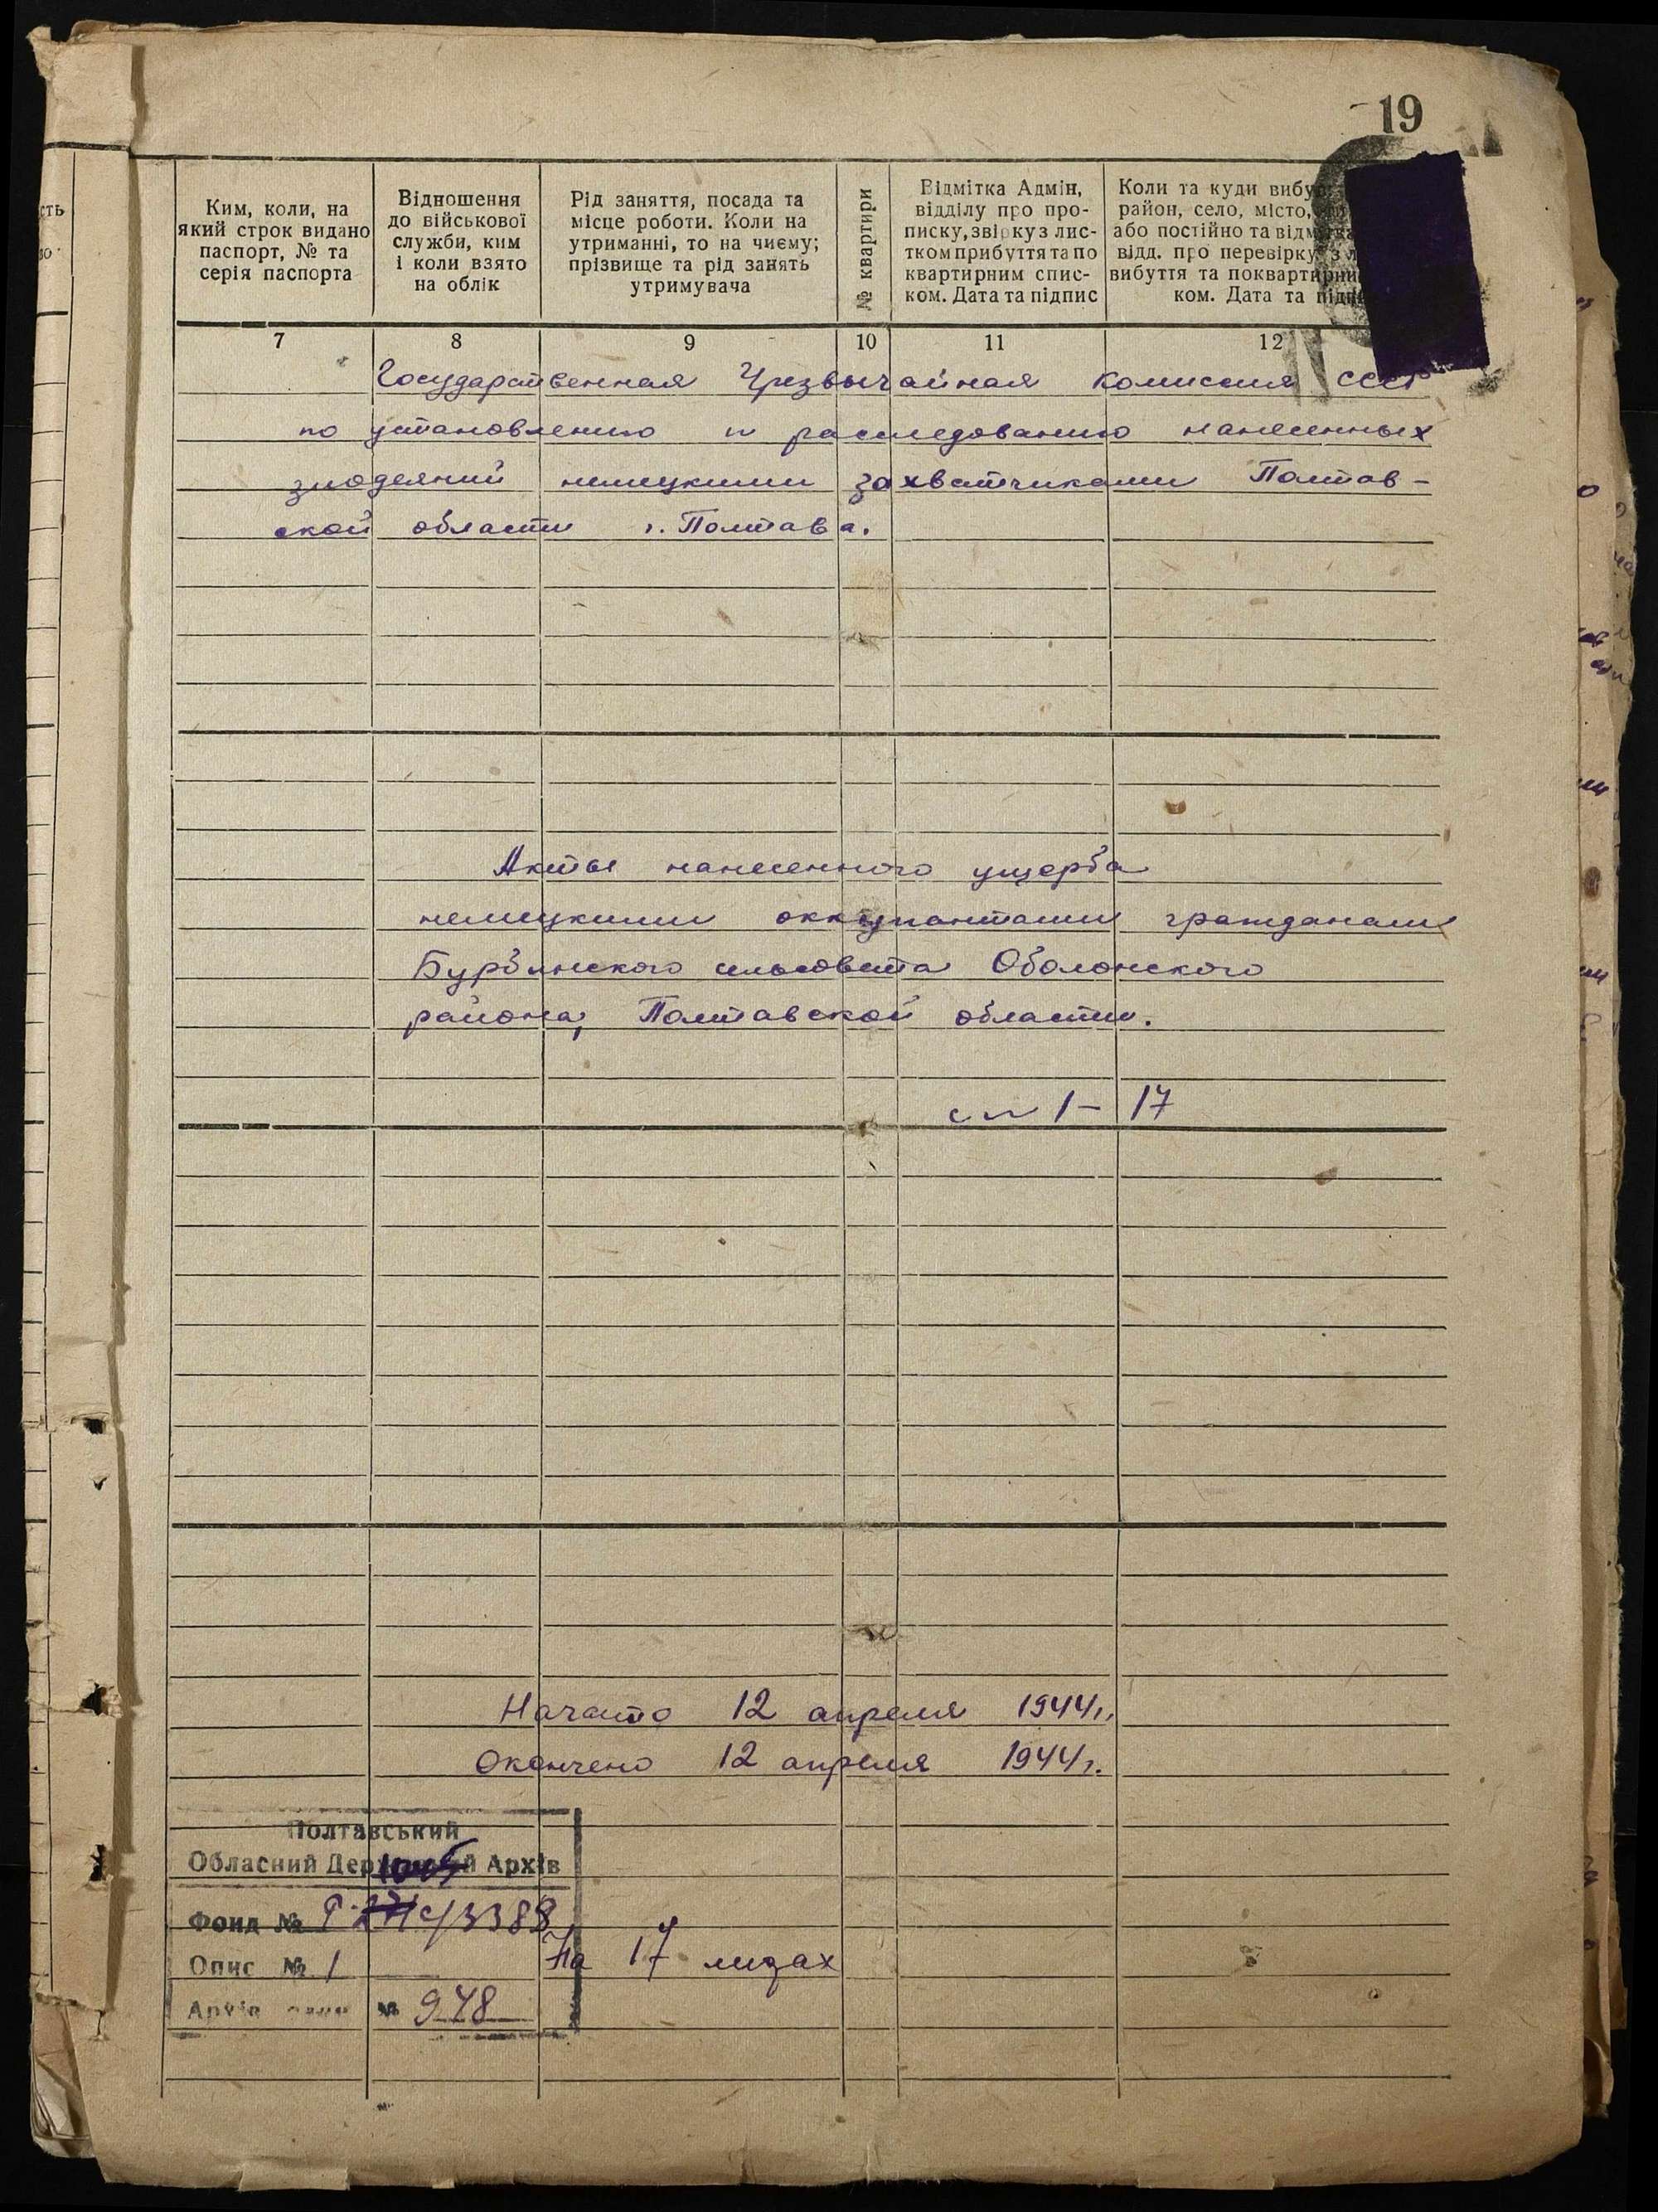 19
Ким, коли, на
який строк видано
паспорт, № та
серія паспорта
Відношення
до військової
служби, ким
і коли взято
на облік
Рід заняття, посада та
місце роботи. Коли на
утриманні, то на чиєму;
прізвище та рід занять
утримувача
№ квартири
Відмітка Адмін,
відділу про про-
писку, звірку з лис-
тком прибуття та по
квартирним спис-
ком. Дата та підпис
Коли та куди
район, село, місто,
або постійно та
відд. про перевірку з
вибуття та
ком. Дата та
7 8 9 10 11 12
Государственная Чрезвычайная комиссия СССР
по установлению и расследованию нанесенных
злодеяний немецкими захватчиками Полтав-
ской области г. Полтава.
Акты нанесенного ущерба
немецкими оккупантами гражданам
Бурбинского сельсовета Оболонского
района, Полтавской области.
1 - 17
Начато 12 апреля 1944г.
Окончено 12 апреля 1944г.
Полтавський
Обласний Архів
Фонд № Р 3388
Опис № 1
На 17 лицах
№ 948